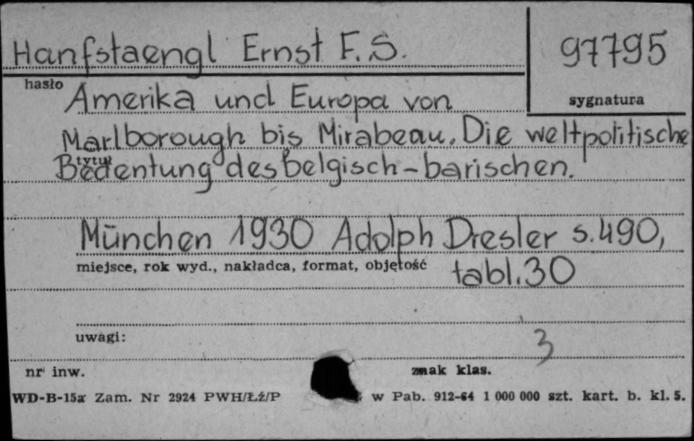 Hanfstaengl Ernst F. S.
97795
hasło
sygnatura
Amerika und Europa von
Marlborough bis Mirabeau. Die weltpolitische
tytuł
Bedentung des belgisch-barischen.
München 1930 Adolph Dresler s.490,
miejsce, rok wyd., nakładca, format, objętość
tabl.30
uwagi:
3
nr inw.
znak klas.
WD-B-15a Zam. Nr 2924 PWH/Łź/P w Pab. 912-64 1 000 000 szt. kart. b. kl. 5.